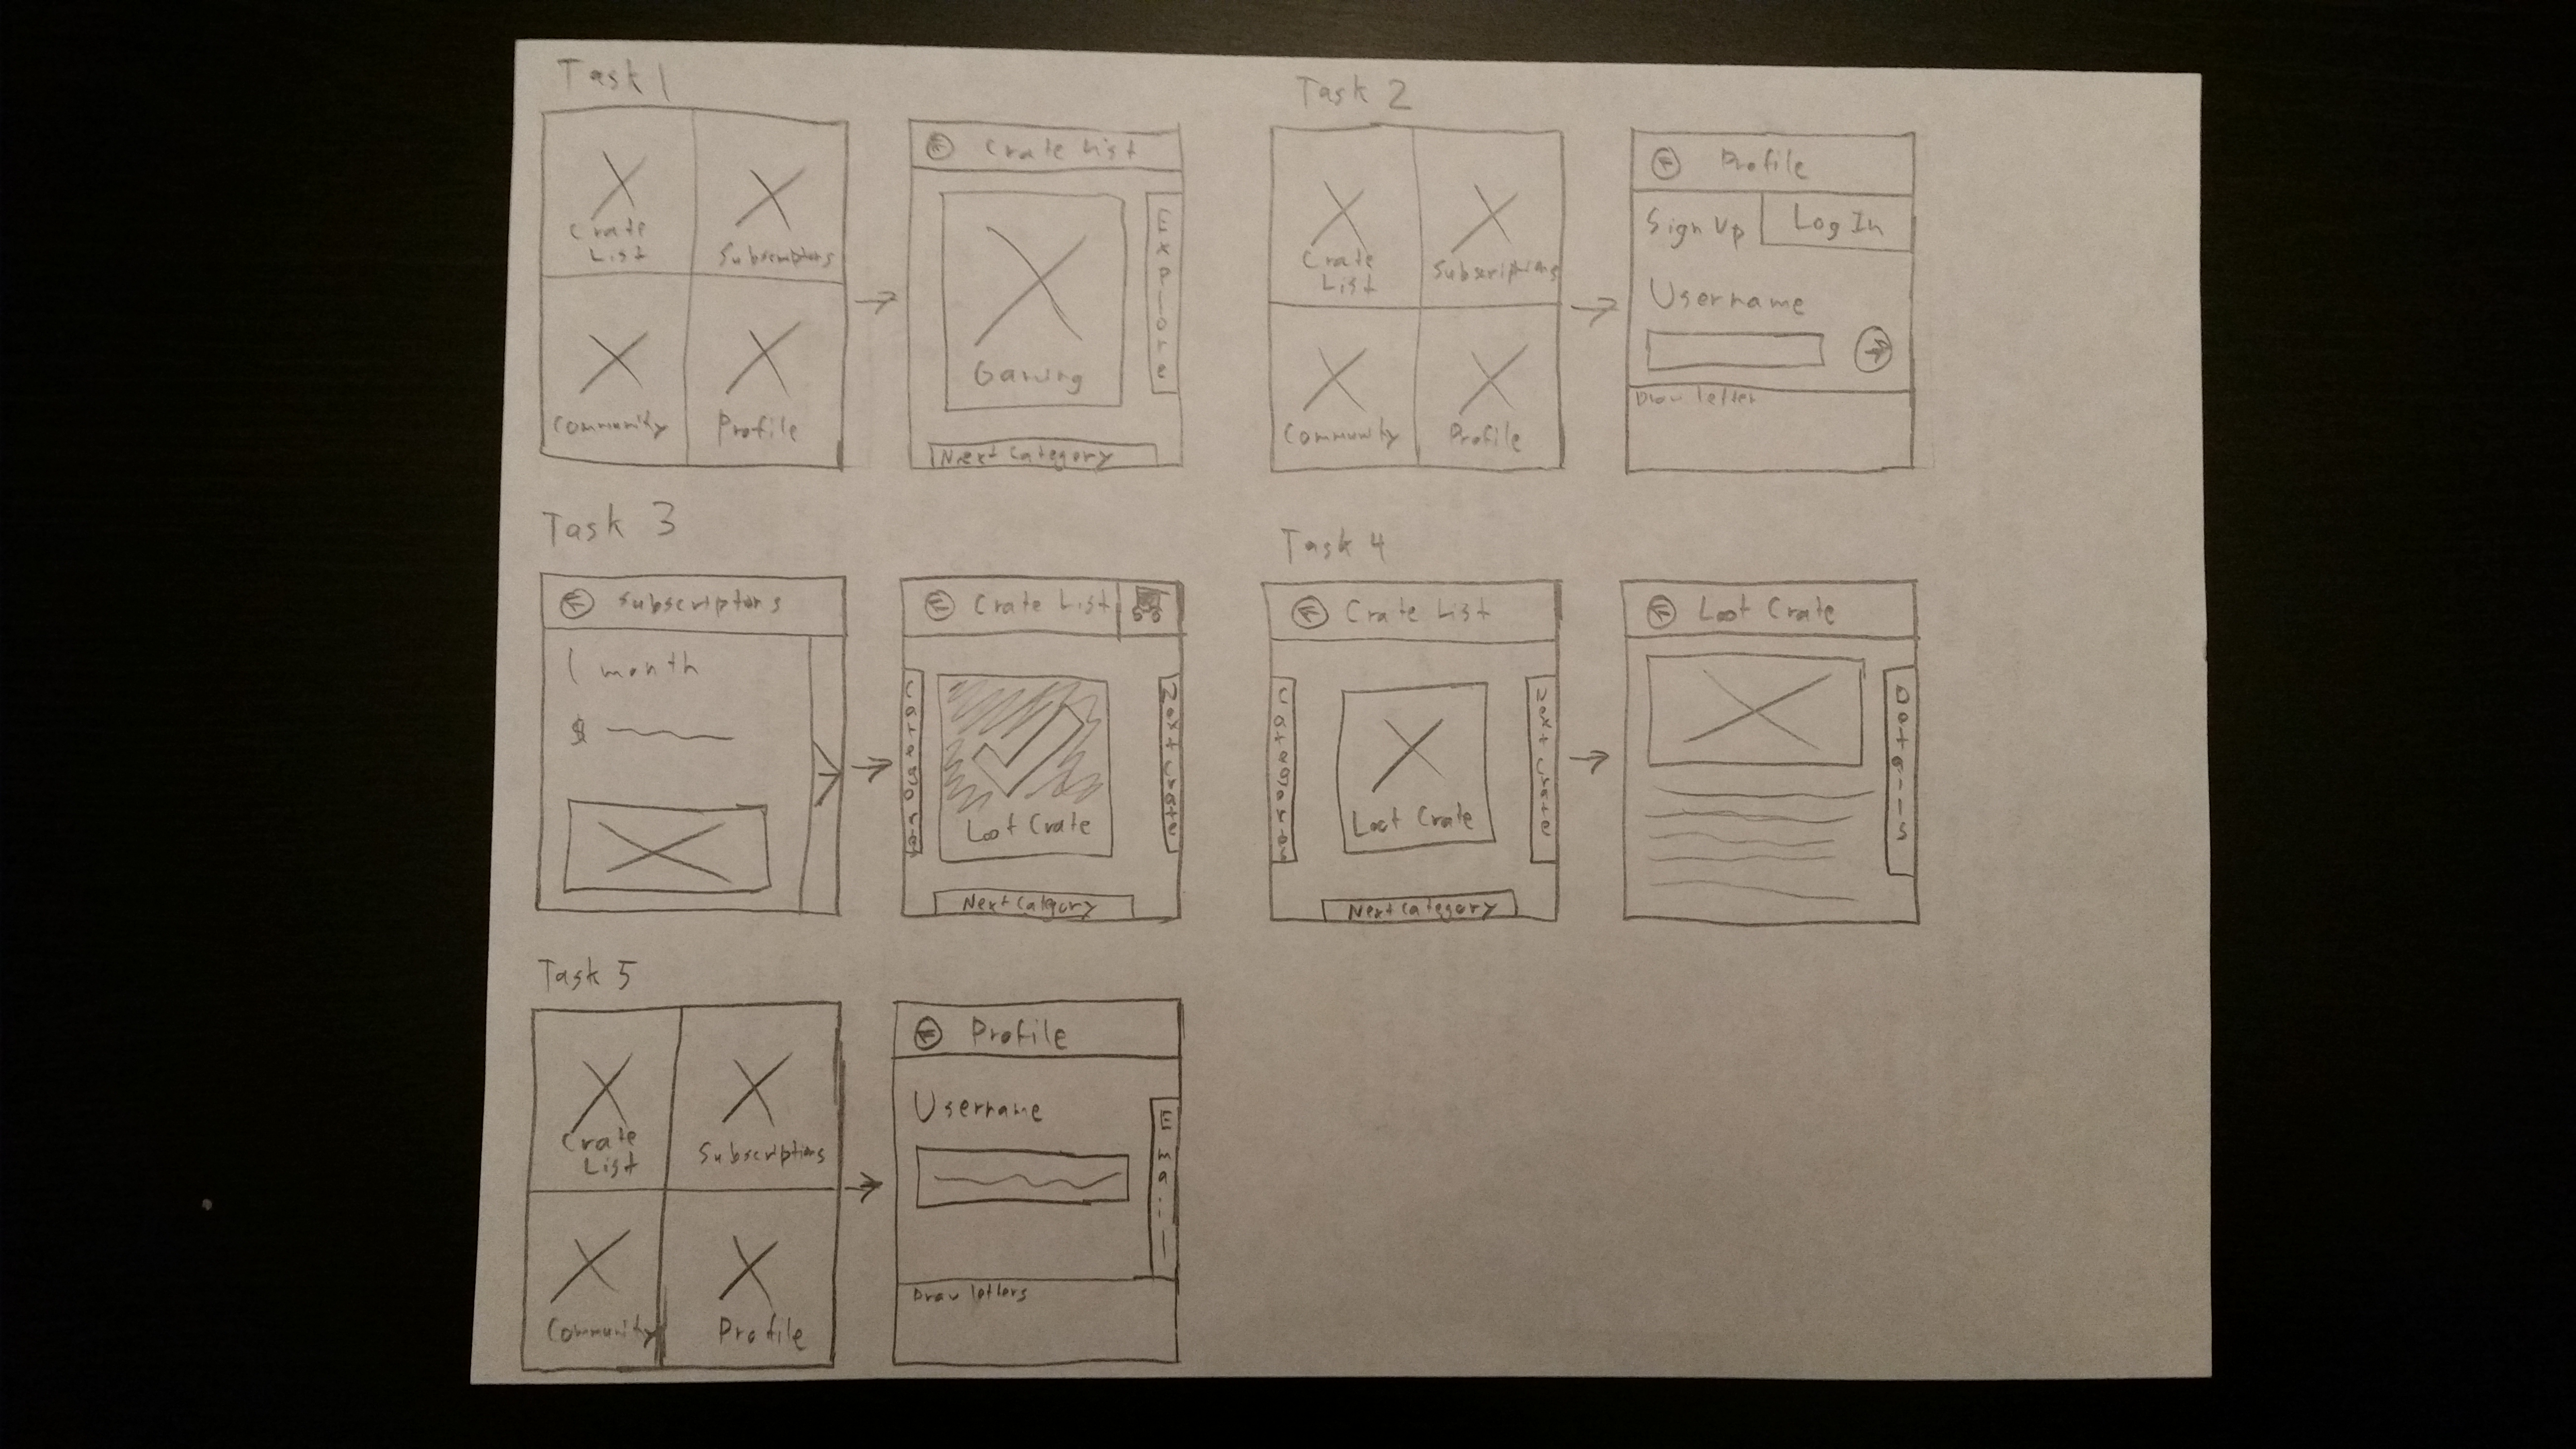 Task 1
Crate
List
Subscriptions
Community
Profile
Crate List
Gaming
Explore
Next Category
Task 2
Crate
List
Subscriptions
Community
Profile
Profile
Sign Up
Log In
Username
Draw letter
Task 3
Subscriptions
1 month
$
Crate List
Categories
Loot Crate
Next Crate
Next Category
Task 4
Crate List
Categories
Loot Crate
Next Crate
Next Category
Loot Crate
Details
Task 5
Crate
List
Subscriptions
Community
Profile
Profile
Username
Email
Draw letters